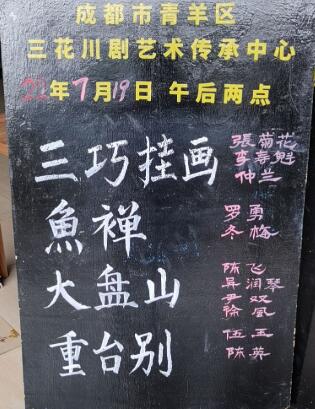 成都市青羊区
三花川剧艺术传承中心
22年7月19日 午后两点
三巧挂画
張菊花
李春魁
仲兰
魚禅
罗勇
冬梅
大盘山
陈飞
吴润琴
尹双
徐凤
重台别
伍玉
陈英